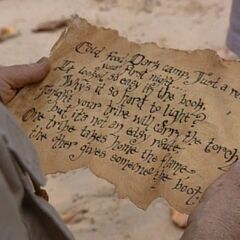 Cold food. Dark camp. Just a re
your first night...
It looked so easy in the book.
Why's it so hard to light?
Tonight your tribe will earn the torch
but it's not an easy route
One tribe takes home the flame
the other gives someone the boot!